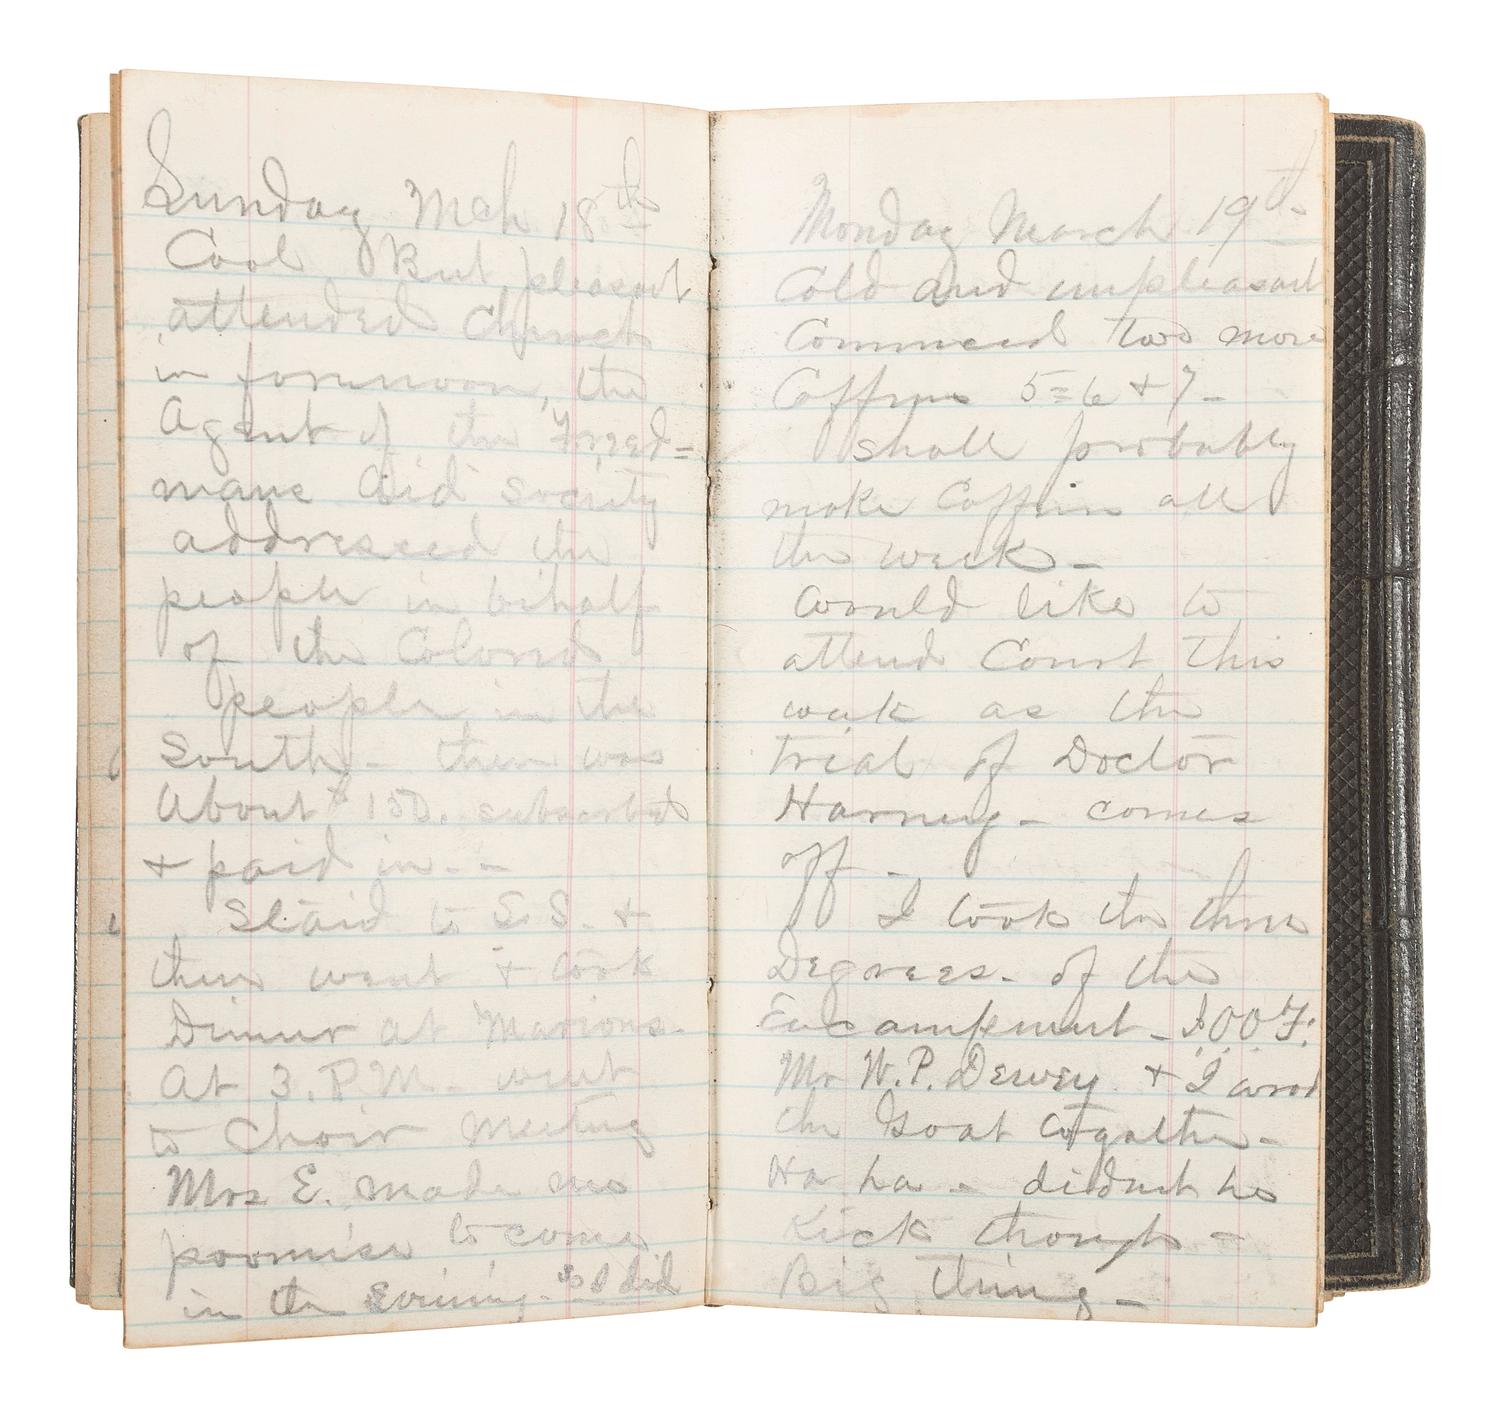 Sunday Mch 18th
Cool But pleasant
attended Church
in forennoon, the
Agent of the Freed=
mans Aid Society
addressed the
people in behalf
of the Colored
people in the
South - there was
About $150. subscribed
+ paid in. -
Staid to S. S. +
then went + took
Dinner at Marions.
At 3. P. M. went
to Choir Meeting
Mrs E. made me
promise to come
in the Evening. so I did
Monday March 19th
Cold and unpleasant
Commced two more
Coffins 5=6 + 7 -
shall probably
make Coffins all
the week -
Would like to
attend Court this
week as the
trial of Doctor
Harney - comes
off -
I took the three
Degrees - of the
Encampment - I.O.O.F.
Mr W. P. Dewey + I wrod
the Goat togather -
Ha ha - didnt he
Kick though -
Big thing -